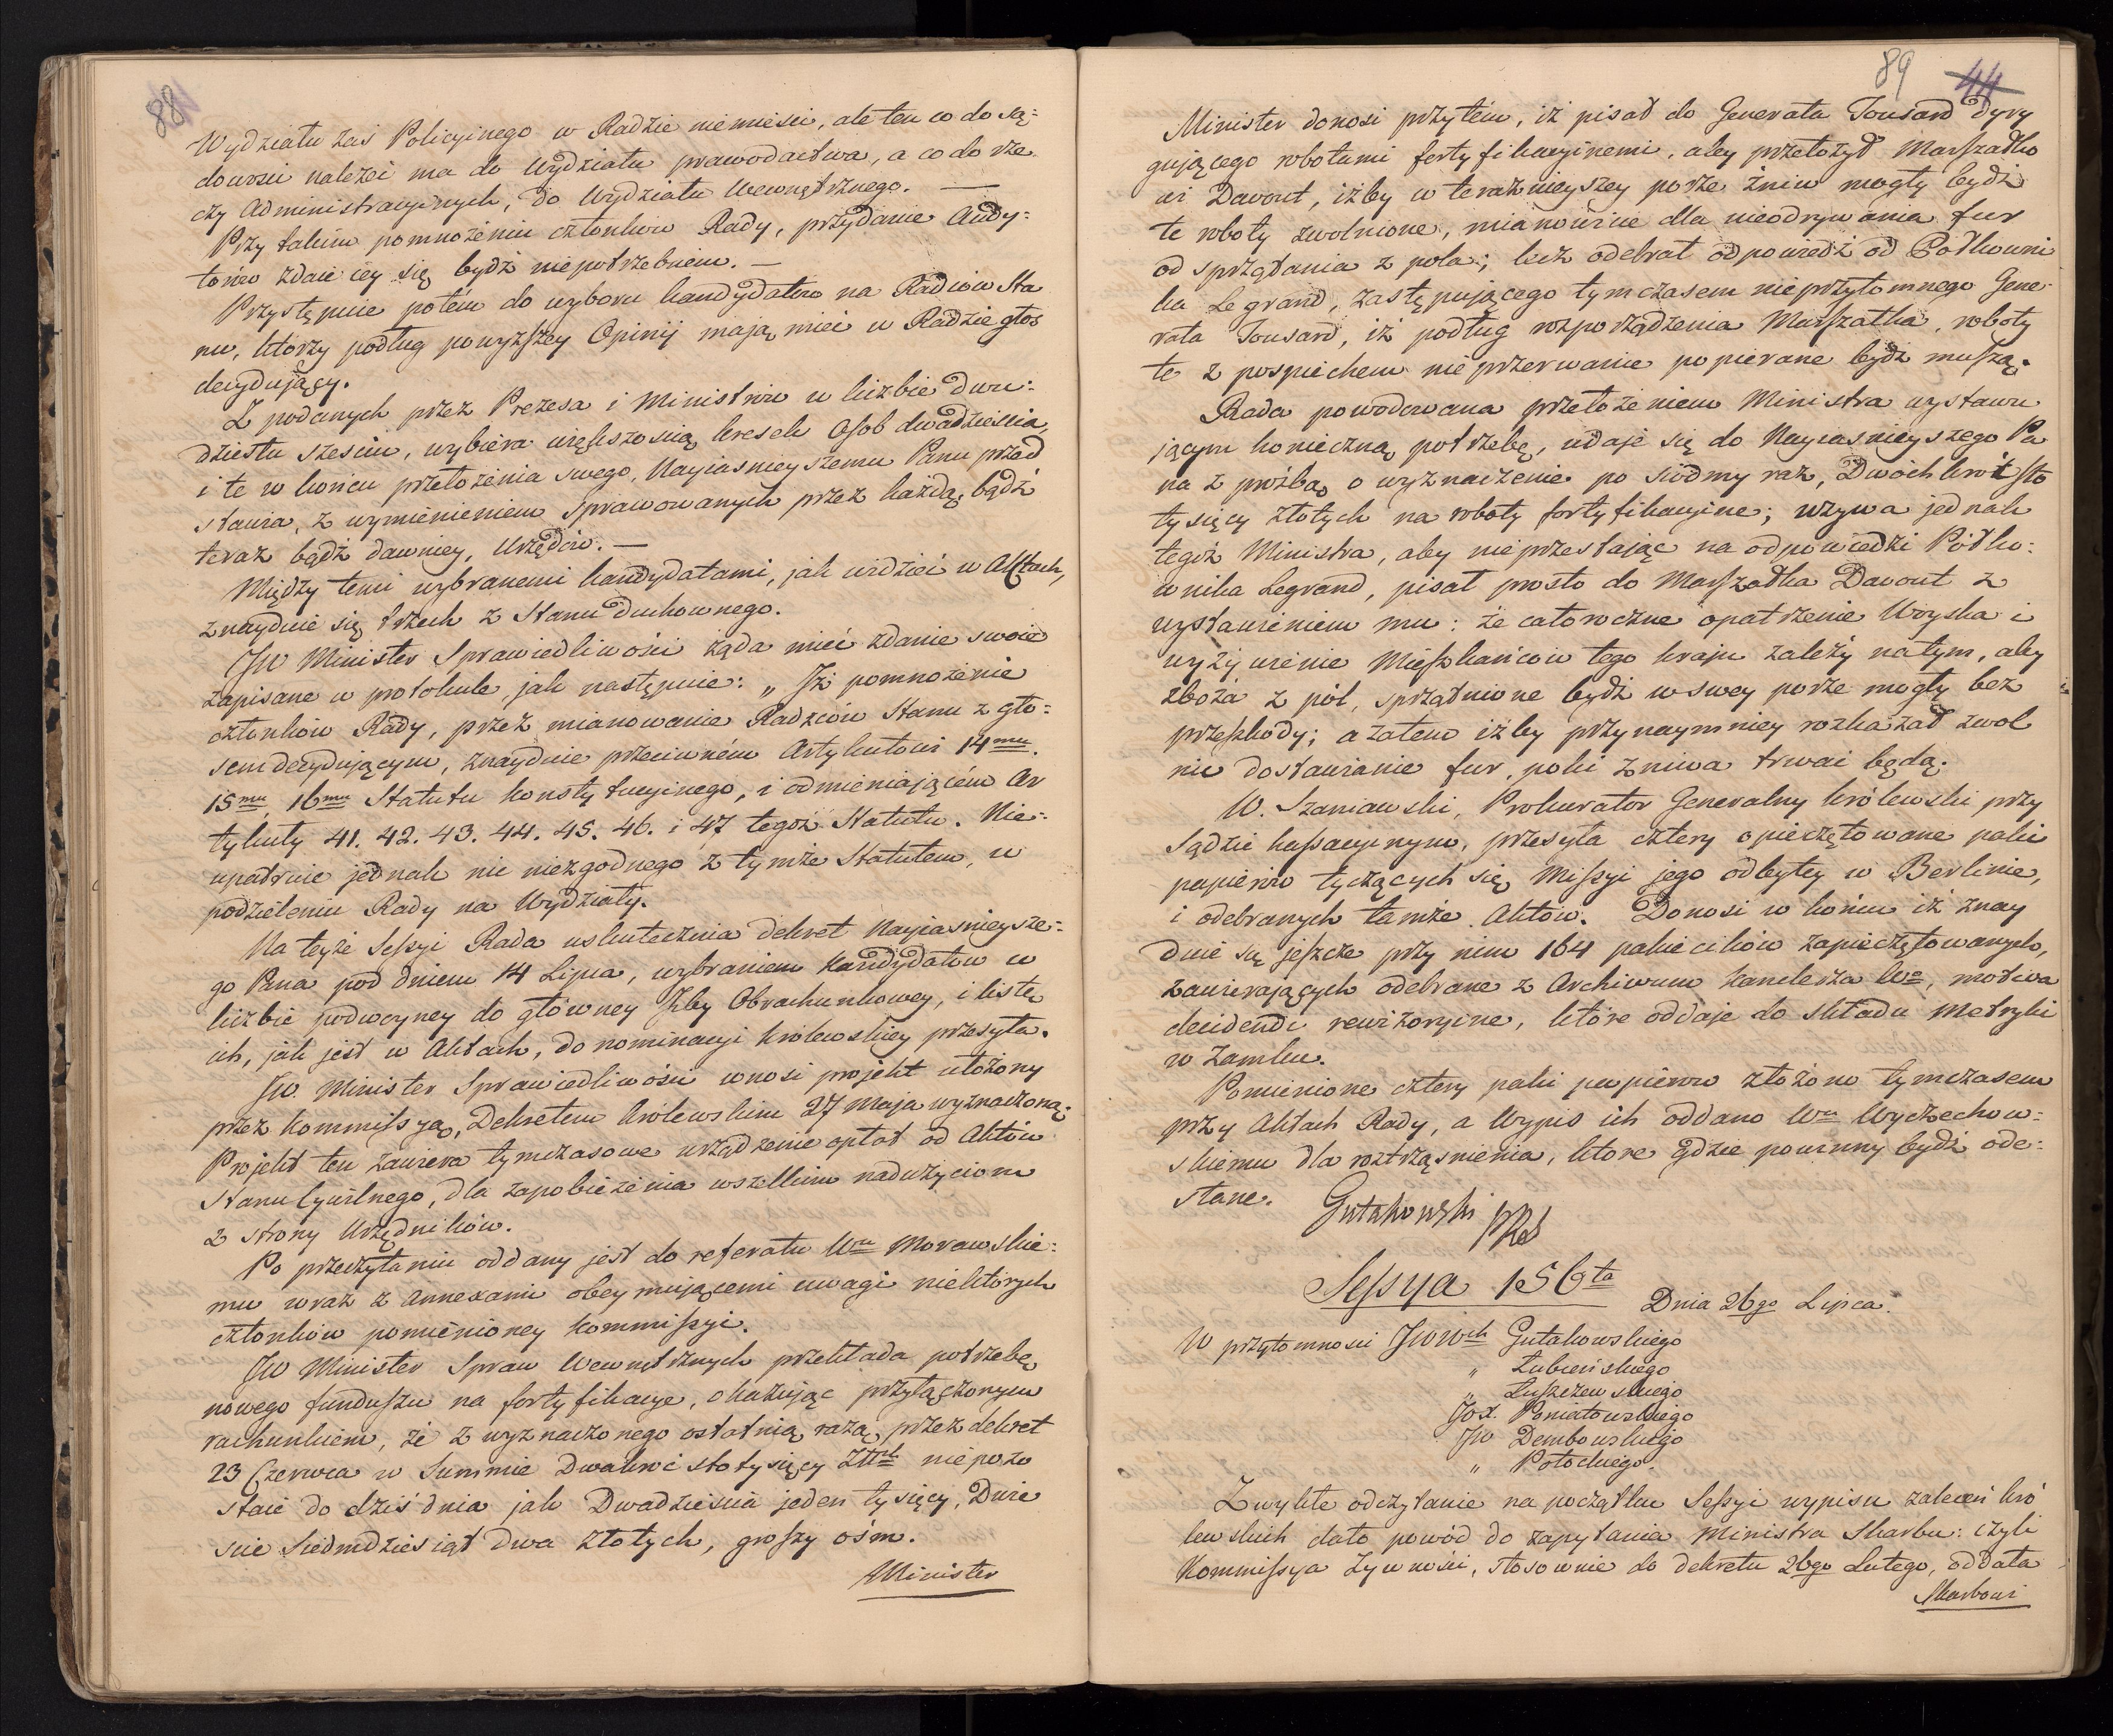 88
Wydziału zaś Policyinego w Radzie niemieści, ale ten co do są=
downości należeć ma do Wydziału prawodactwa, a co do rze
czy Administracyinych, do Wydziału Wewnętrznego. —
Przy takim pomnożeniu członków Rady, przydanie Audy=
torów zdaie iey się bydź niepotrzebnem. —
Przystępuie potém do wyboru kandydatów na Radców Sta
nu, którzy podług powyższey Opinij mają mieć w Radzie głos
decydujący.
Z podanych przez Prezesa i Ministrów w liczbie dwu=
dziestu sześciu, wybiéra większością kresek Osób dwadzieścia,
i te w końcu przełożenia swego, Nayiaśnieyszemu Panu przed
stawia, z wymienieniem sprawowanych przez każdą, bądź
teraz bądź dawniey, Urzędów. —
Między temi wybranemi kandydatami, jak widzieć w Aktach,
znayduie się trzech z Stanu duchownego.
JW Minister Sprawiedliwości żąda mieć zdanie swoie
zapisane w protokule, jak następuie: „ Iż pomnożenie
członków Rady, przez mianowanie Radzców Stanu z gło=
sem decydującym, znayduie przeciwném Artykułowi 14mu.
15mu, 16mu Statutu konstytucyinego, i odmieniającém Ar
tykuły 41. 42. 43. 44. 45. 46. i 47 tegoż Statutu. Nie=
upatruie jednak nic niezgodnego z tymże Statutem, w
podzieleniu Rady na Wydziały.
Na teyże Sessyi Rada uskutecznia dekret Nayiaśnieysze=
go Pana pod dniem 14 Lipca, wybraniem Kandydatów w
liczbie podwoyney do główney Izby Obrachunkowey, i listę
ich, jak jest w Aktach, do nominacyi królewskiey przesyła.
JW. Minister Sprawiedliwości wnosi projekt ułożony
przez Kommissyą, Dekretem królewskim 27 Maja wyznaczoną;
Projekt ten zawiera tymczasowe urządzenie opłat od Aktów
Stanu Cywilnego, dla zapobieżenia wszelkim nadużyciom
z strony Urzędników.
Po przeczytaniu oddany jest do referatu Wu Morawskie=
mu wraz z Annexami obeymującemi uwagi niektórych
członków pomienioney Kommissyi.
JW Minister Spraw Wewnętrznych przekłada potrzebę
nowego funduszu na fortyfikacye, okazując przyłączonym
rachunkiem, że z wyznaczonego ostatnią rażą przez dekret
23 Czerwca w Summie Dwakroć sto tysięcy Złtch niepozo
staie do dziś dnia jak Dwadzieścia jeden tysięcy, Dwie
ście Siedmdziesiąt dwa złotych, groszy ośm.
Minister
89 44
Minister donosi przytém, iż pisał do Generała Tousard dyry
gującego robotami fortyfikacyinemi, aby przełożył Marszałko
wi Davout, iżby w teraznieyszey porze żniw mogły bydź
te roboty zwolnione, mianowicie dla nieodrywania fur
od sprzątania z pola; lecz odebrał odpowiedź od Półkowni
ka Legrand, zastępującego tymczasem nieprzytomnego Gene=
rała Tousard, iż podług rozporządzenia Marszałka, roboty
te z pospiechem nieprzerwanie popierane bydź muszą.
Rada powodowana przełożeniem Ministra wystawu
jącym konieczną potrzebę, udaje się do Nayiaśnieyszego Pa
na z proźbą o wyznaczenie po siódmy raz, Dwóchkroć sto
tysięcy złotych na roboty fortyfikacyine; wzywa jednak
tegoż Ministra, aby nieprzestając na odpowiedzi Półko=
wnika Legrand, pisał prosto do Marszałka Davout z
wystawieniem mu: że całoroczne opatrzenie Woyska i
wyżywienie Mieszkańców tego kraju zależy natym, aby
zboża z pól, sprzątnione bydź w swey porze mogły bez
przeszkody; a zatem iżby przynaymniey rozkazał zwol
nić dostawianie fur, poki żniwa trwać będą.
W. Szaniawski, Prokurator Generalny królewski przy
Sądzie kassacyinym, przesyła cztery opieczętowane paki
papierów tyczących się Missyi jego odbytey w Berlinie,
i odebranych tamże Aktów. Donosi w końcu iż znay
duie się jeszcze przy nim 164 pakiecików zapieczętowanych,
zawierających odebrane z Archiwum Kanclerza Wo, motiva
decidendi rewizoryine, które oddaje do składu Metryki
w Zamku.
Pomienione cztery paki papierów złożono tymczasem
przy Aktach Rady, a Wypis ich oddano Wu Wyczechow=
skiemu dla roztrząśnienia, które gdzie powinny bydź ode=
słane.
Gutakowski PRS
Sessya 156ta
Dnia 26go Lipca.
W przytomności JWWch Gutakowskiego
„ Łubieńskiego
„ Łuszczewskiego
JOX. Poniatowskiego
JW Dembowskiego
„ Potockiego.
Zwykłe odczytanie na początku Sessyi wypisu zaleceń kró
lewskich dało powód do zapytania Ministra Skarbu: czyli
Kommissya Żywności, stosownie do dekretu 26go Lutego, oddała
Skarbowi